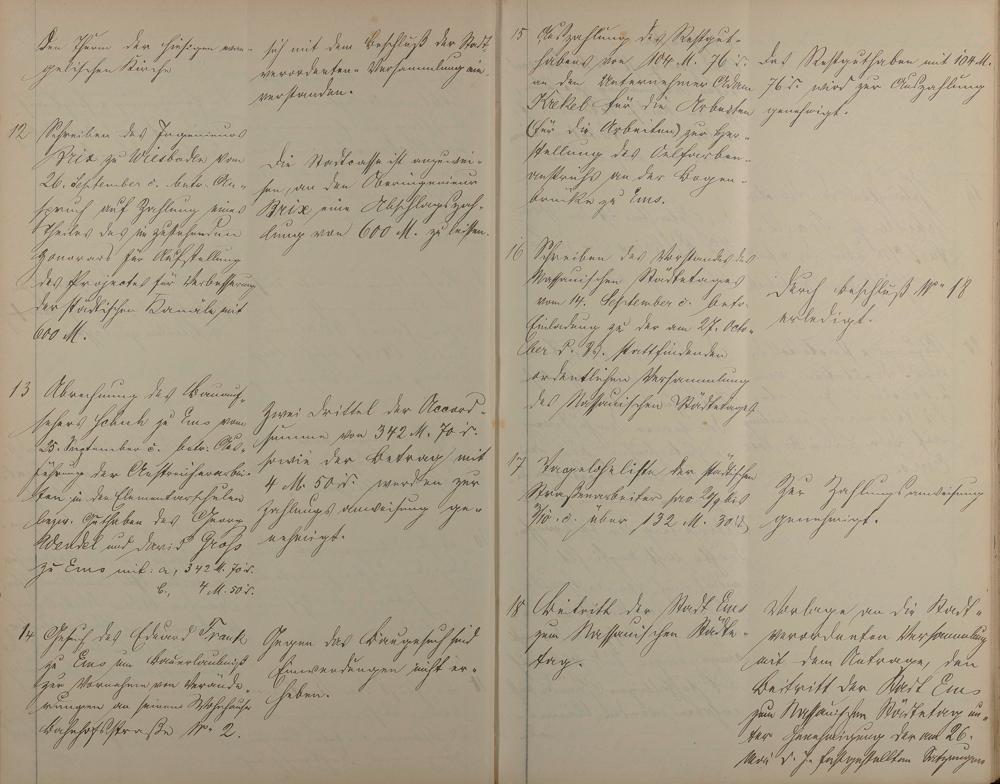 den Thurm der hiesigen evan-
gelischen Kirche
sich mit dem Beschluß der Stadt
verordneten-Versammlung ein-
verstanden.
12 Schreiben des Ingenieurs
Brix zu Wiesbaden vom
26. September c. betr. An-
spruch auf Zahlung eines
Theiles des ihm zustehenden
Honorars für Aufstellung
des Projectes für Verbesserung
der städtischen Kanäle mit
600 M.
Die Stadtcasse ist anzuwei-
sen, an den Oberingenieur
Brix eine Abschlagszah-
lung von 600 M. zu leisten.
13 Abrechnung des Bauauf-
sehers Schenk zu Ems vom
25. September c. betr. Aus-
führung der Anstreicherarbei-
ten in den Elementarschulen
bezw. Guthaben des Georg
Wendel und David Groß
zu Ems mit: a, 342 M. 70 d.
b, 4 M. 50 d.
Zwei Drittel der Accord-
summe von 342 M. 70 d.
sowie der Betrag mit
4 M. 50 d. werden zur
Zahlungsanweisung ge-
nehmigt.
14 Gesuch des Eduard Frank
zu Ems um Bauerlaubniß
zur Vornahme von Verände-
rungen an seinem Wohnhause
Bahnhofsstraße No 2.
Gegen das Baugesuch sind
Einwendungen nicht er-
heben.
15 Auszahlung des Restgut-
habens von 104 M. 76 d.
an den Unternehmer Adam
Krekel für die Arbeiten
(für die Arbeiten) zur Her-
stellung des Oelfarben-
anstrichs an der Bogen-
brücke zu Ems.
Das Restguthaben mit 104 M.
76 d. wird zur Auszahlung
genehmigt.
16 Schreiben des Vorstandes des
Nassauischen Städtetages
vom 14. September c. betr.
Einladung zu der am 27. Octo-
ber d. Js. stattfindenden
ordentlichen Versammlung
des Nassauischen Städtetages
Durch Beschluß No 18
erledigt.
17 Tagelohnliste der städtischen
Straßenarbeiter pro 20/9 bis
3/10. c. über 132 M. 30 d.
Zur Zahlungsanweisung
genehmigt.
18 Beitritt der Stadt Ems
zum Nassauischen Städte-
tag.
Vorlage an die Stadt-
verordneten Versammlung
mit dem Antrage, den
Beitritt der Stadt Ems
zum Nassauischen Städtetag un-
ter Genehmigung der am 26.
Mai d. J. festgestellten Satzungen